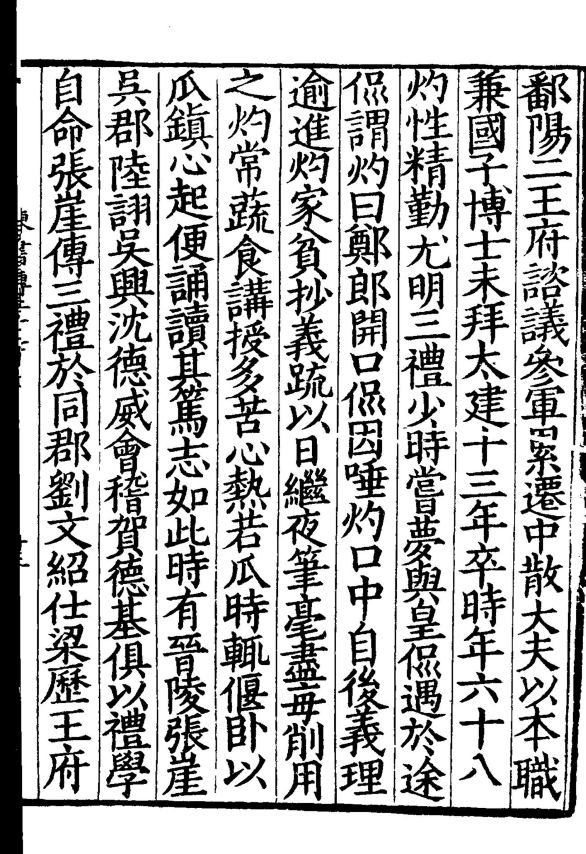 鄱陽二王府諮議參軍累遷中散大夫以本職
兼國子博士未拜太建十三年卒時年六十八
灼性精勤尤明三禮少時嘗夢與皇偘遇於途
偘謂灼曰鄭郎開口偘因唾灼口中自後義理
逾進灼家貧抄義疏以日繼夜筆毫盡每削用
之灼常蔬食講授多苦心熱若瓜時輒偃卧以
瓜鎮心起便誦讀其篤志如此時有晉陵張崖
吳郡陸詡吳興沈德威會稽賀德基俱以禮學
自命張崖傳三禮於同郡劉文紹仕梁歷王府